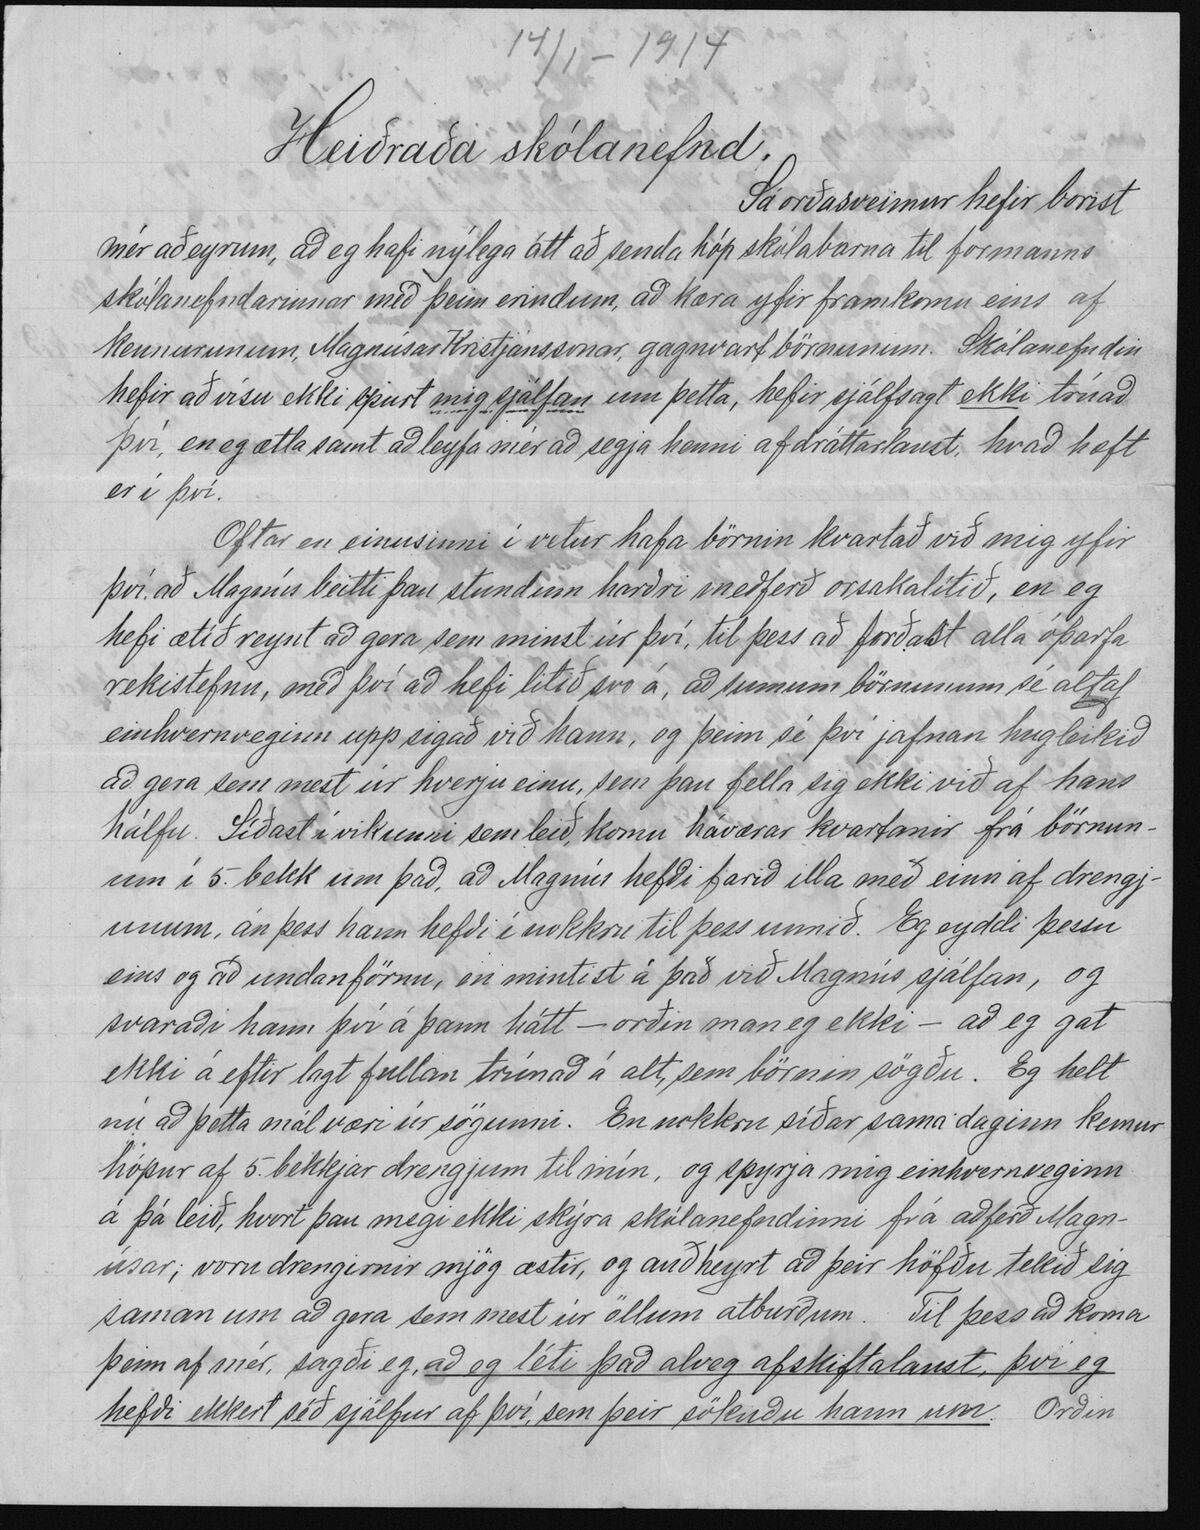 14/1 - 1914
Heiðraða skólanefnd.
Sá orðasveimur hefir borist
mér að eyrum, að eg hafi nýlega átt að senda hóp skólabarna til formanns
skólanefndarinnar með þeim erindum, að kæra yfir framkomu eins af
kennurunum, Magnúsar Kristjánssonar, gagnvart börnunum. Skólanefndin
hefir að vísu ekki spurt mig sjálfan um þetta, hefir sjálfsagt ekki trúað
því, en eg ætla samt að leyfa mér að segja henni afdráttarlaust, hvað hæft
er í því.
Oftar en einusinni í vetur hafa börnin kvartað við mig yfir
því, að Magnús beitti þau stundum harðri meðferð orsakalítið, en eg
hefi ætíð reynt að gera sem minst úr því, til þess að forðast alla óþarfa
rekistefnu, með því að hefi litið svo á, að sumum börnunum sé altaf
einhvernveginn uppsigað við hann, og þeim sé því jafnan hugleikið
að gera sem mest úr hverju einu, sem þau fella sig ekki við af hans
hálfu. Síðast í vikunni sem leið, komu háværar kvartanir frá börnun-
um í 5. bekk um það, að Magnús hefði farið illa með einn af drengj-
unum, án þess hann hefði í nokkru til þess unnið. Eg eyddi þessu
eins og að undanförnu, en mintist á það við Magnús sjálfan, og
svaraði hann því á þann hátt - orðin man eg ekki - að eg gat
ekki á eftir lagt fullan trúnað á alt, sem börnin sögðu. Eg helt
nú að þetta mál væri úr sögunni. En nokkru síðar sama daginn kemur
hópur af 5. bekkjar drengjum til mín, og spyrja mig einhvernveginn
á þá leið, hvort þau megi ekki skýra skólanefndinni frá aðferð Magn-
úsar; voru drengirnir mjög æstir, og auðheyrt að þeir höfðu tekið sig
saman um að gera sem mest úr öllum atburðum. Til þess að koma
þeim af mér, sagði eg, að eg léti það alveg afskiftalaust, því eg
hefði ekkert séð sjálfur af því, sem þeir sökuðu hann um. Orðin